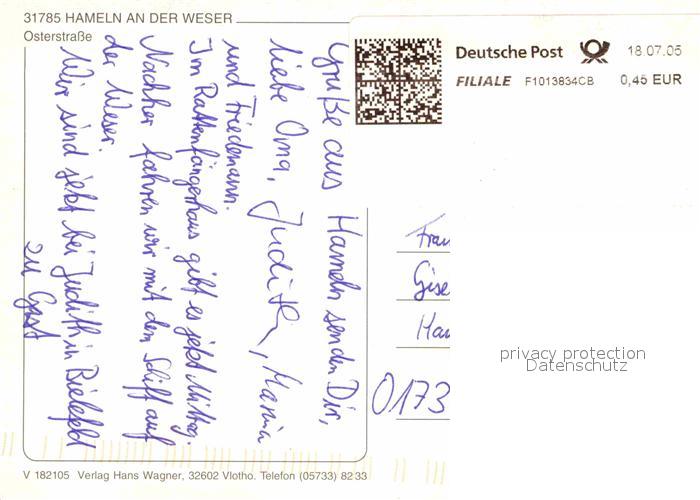 31785 HAMELN AN DER WESER
Osterstraße
Deutsche Post
18.07.05
FILIALE F1013834CB 0,45 EUR
Grüße aus Hameln senden Dir,
liebe Oma, Judith, Maria
und Friedemann.
Im Rattenfängerhaus gibt es jetzt Mittag.
Nachher fahren wir mit dem Schiff auf
der Weser.
Wir sind jetzt bei Judith in Bielefeld
zu Gast
Frau
Gise
Han
0173
privacy protection
Datenschutz
V 182105 Verlag Hans Wagner, 32602 Vlotho. Telefon (05733) 82 33